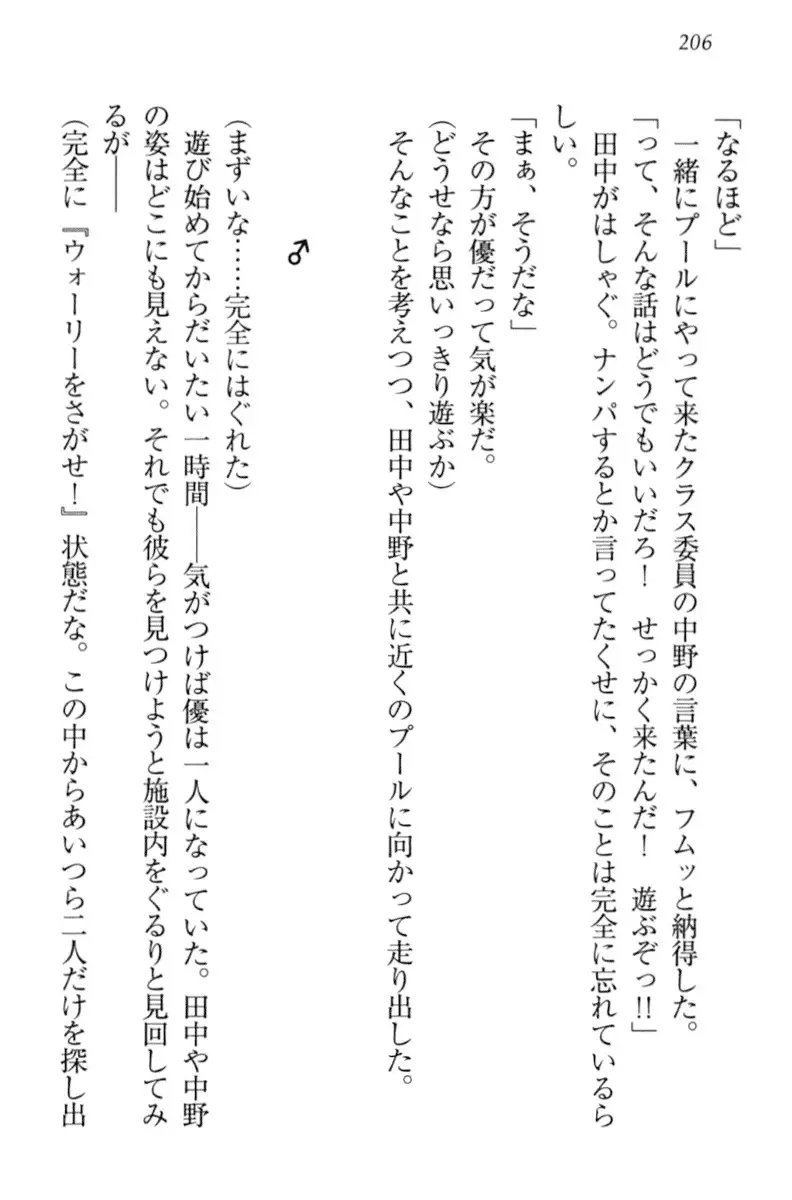 206
「なるほど」
一緒にプールにやって来たクラス委員の中野の言葉に、フムッと納得した。
「って、そんな話はどうでもいいだろ！　せっかく来たんだ！　遊ぶぞっ!!」
田中がはしゃぐ。ナンパするとか言ってたくせに、そのことは完全に忘れているら
しい。
「まぁ、そうだな」
その方が優だって気が楽だ。
（どうせなら思いっきり遊ぶか）
そんなことを考えつつ、田中や中野と共に近くのプールに向かって走り出した。
♂
（まずいな……完全にはぐれた）
遊び始めてからだいたい一時間――気がつけば優は一人になっていた。田中や中野
の姿はどこにも見えない。それでも彼らを見つけようと施設内をぐるりと見回してみ
るが――
（完全に『ウォーリーをさがせ！』状態だな。この中からあいつら二人だけを探し出